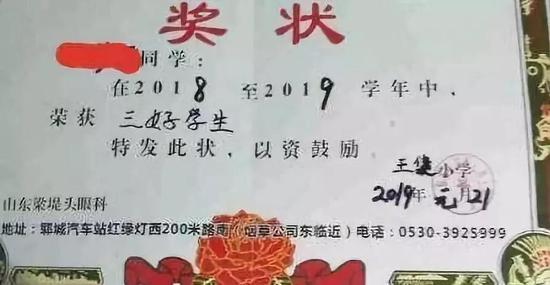 奖状
同学：
在2018至2019学年中，
荣获 三好学生
特发此状，以资鼓励
王 小学
2019年元月21
山东梁堤头眼科
地址：郓城汽车站红绿灯西200米路南（烟草公司东临近）电话：0530-3925999